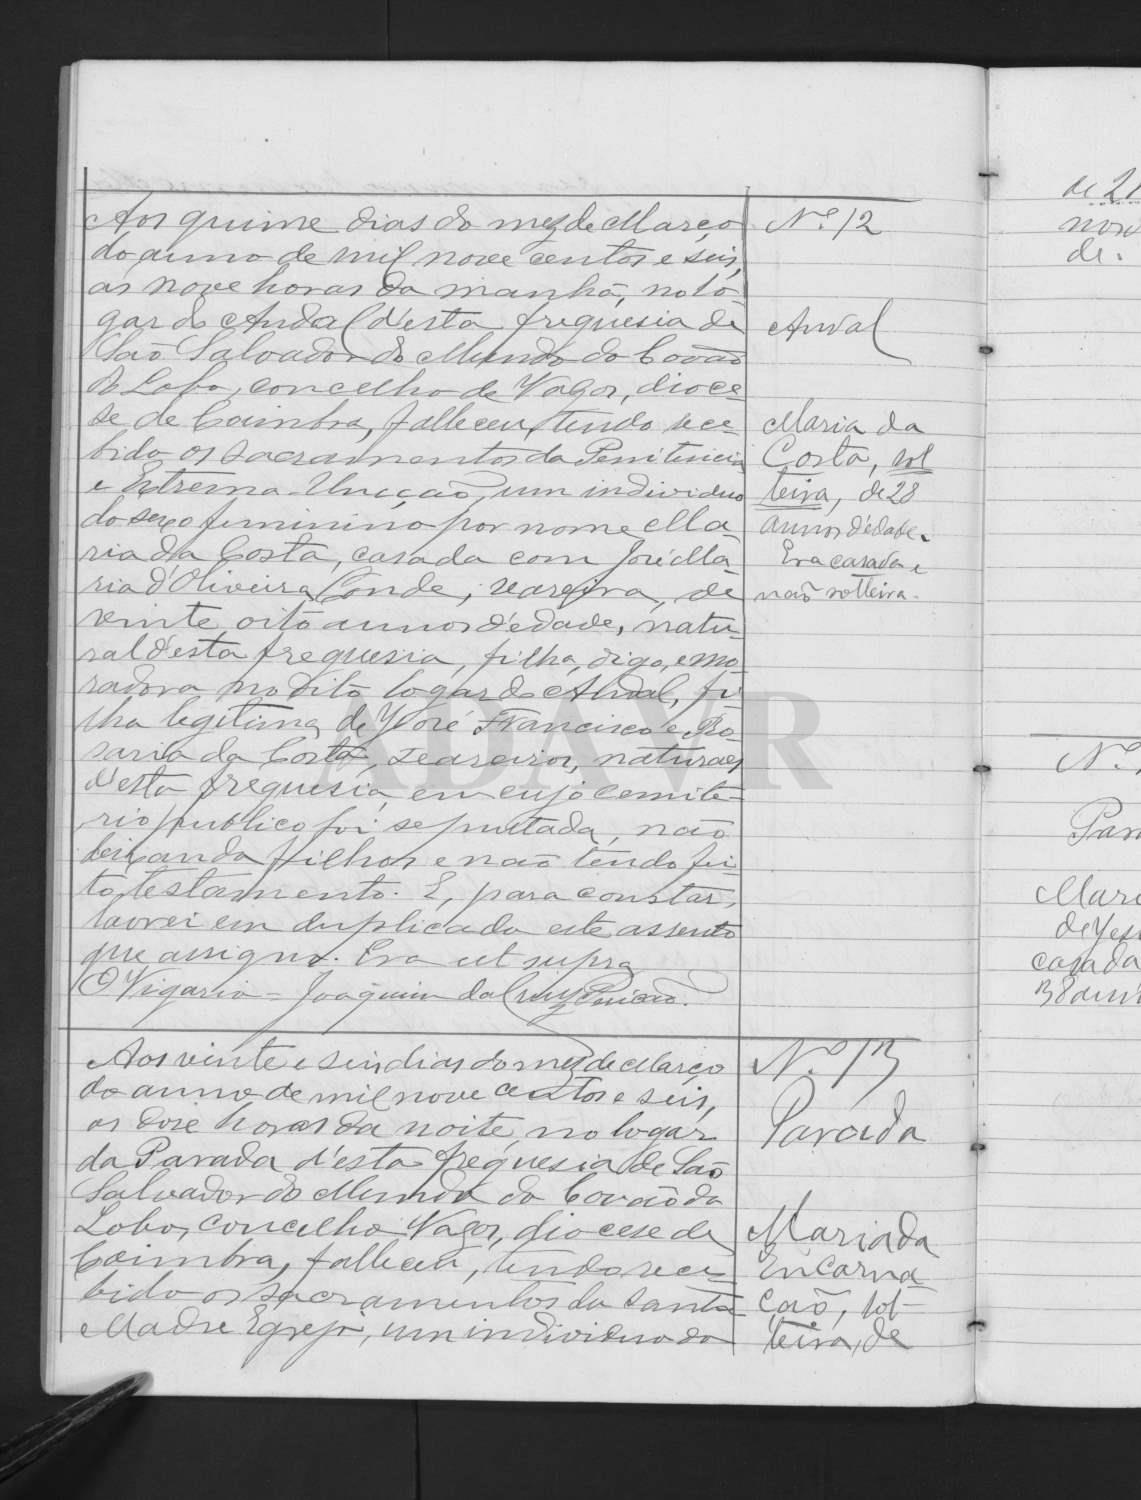 Nº 12
Andal
Maria da
Costa, sol
teira, de 28
annos d'edade.
Era casada e
não solteira.
Aos quinze dias do mez de Março
do anno de mil nove centos e seis,
as nove horas da manhã, no lo-
gar do Andal d'esta freguesia de
São Salvador do Mundo do Covão
do Lobo, concelho de Vagos, dioce-
se de Coimbra, falleceu, tendo rece-
bido os sacramentos da Penitencia
e Extrema-Uncção, um individuo
do sexo feminino por nome Ma-
ria da Costa, casada com José Ma-
ria d'Oliveira Conde, seareira, de
vinte oito annos d'edade, natu-
ral d'esta freguesia, filha, digo, e mo
radora no dito logar do Andal, fi-
lha legitima de José Francisco e Ro-
saria da Costa, seareiros, naturaes
d'esta freguesia, em cujo cemite-
rio publico foi sepultada, não
deixando filhos e não tendo fei-
to testamento. E, para constar,
lavrei em duplicado este assento
que assigno. Era ut supra
O Vigario = Joaquim da Cruz
Nº 13
Parada
Maria da
Encarna
ção, sol-
teira, de
Aos vinte e seis dias do mez de Março
do anno de mil nove centos e seis,
as doze horas da noite, no logar
da Parada d'esta freguesia de São
Salvador do Mundo do Covão do
Lobo, concelho Vagos, diocese de
Coimbra, falleceu, tendo rece-
bido os sacramentos da Santa
Madre Egreja, um individuo do
de 21
nov
de
Nº
Par
Mari
de Jesu
casada
38 anni
ADAVR